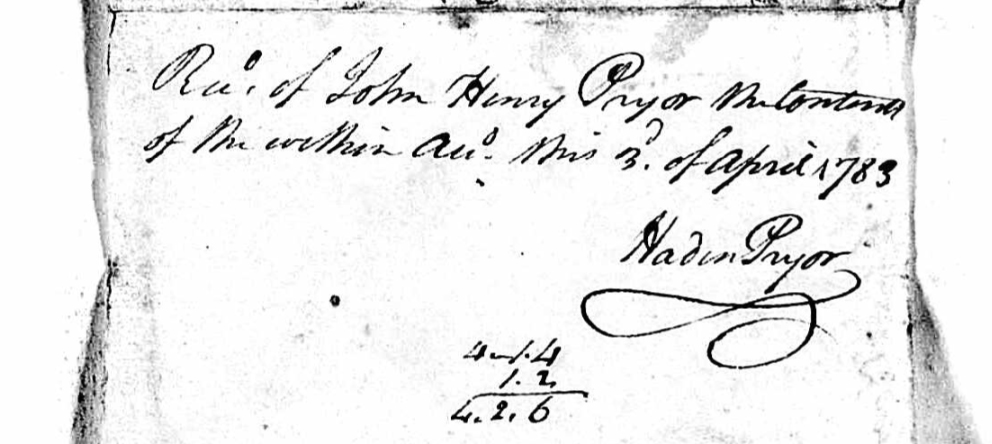 Rec.d of John Henry Pryor the Contents
of the within Acc.t this 3.d of April 1783
Haden Pryor
4 " 1.4
1.2
4.2.6